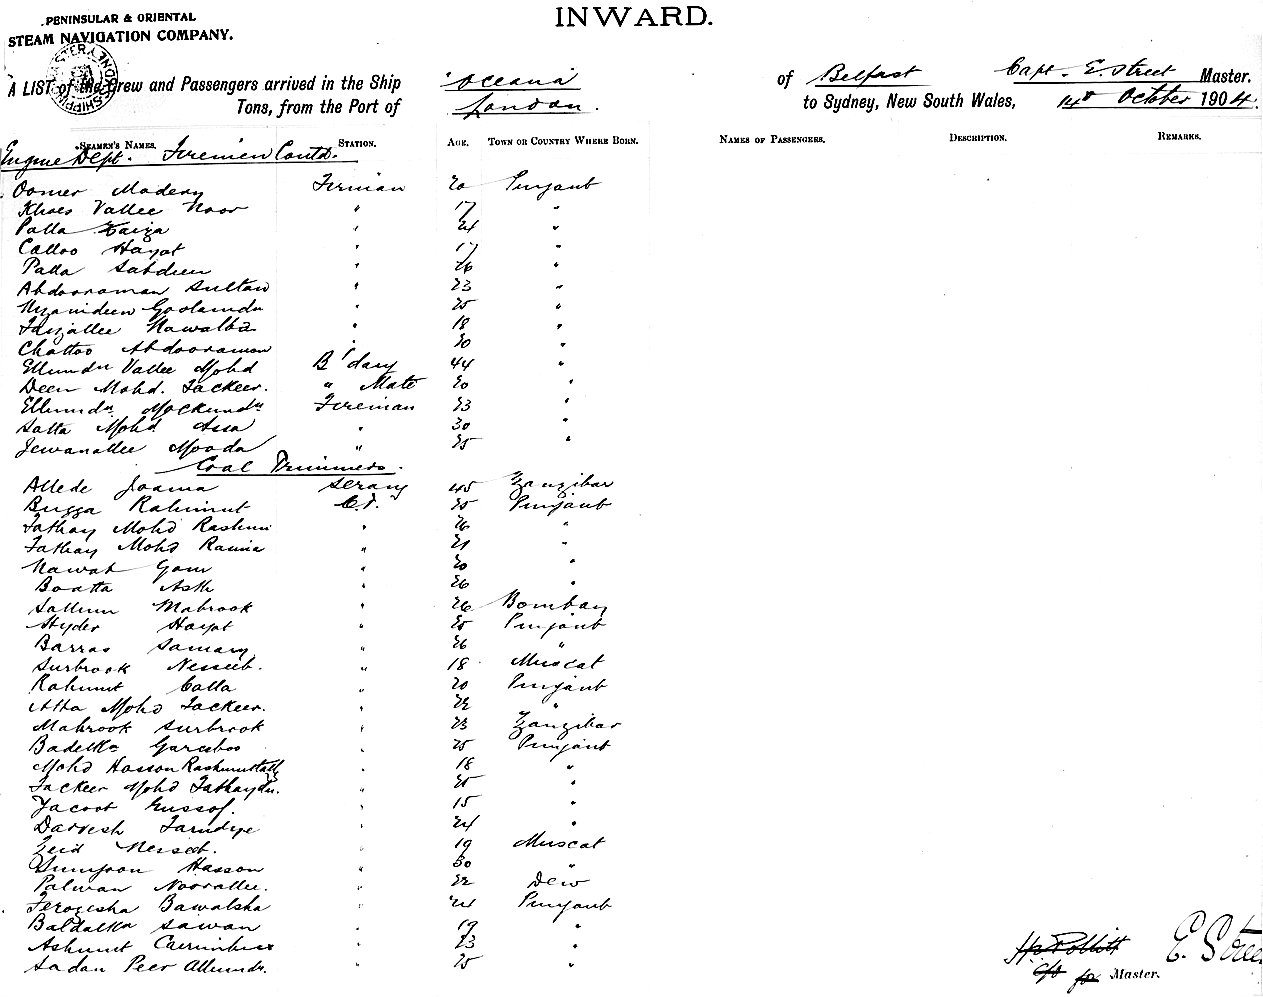 PENINSULAR & ORIENTAL
STEAM NAVIGATION COMPANY.
INWARD.
A LIST of the Crew and Passengers arrived in the Ship Oceana of Belfast Capt. E. Street Master.
Tons, from the Port of London. to Sydney, New South Wales, 14th October 1904.
SEAMEN'S NAMES. STATION. AGE. TOWN OR COUNTRY WHERE BORN. NAMES OF PASSENGERS. DESCRIPTION. REMARKS.
Engine Dept. Firemen Contd.
Oomer Madeny Fireman 20 Punjaub
Khoes Vallee Noor " 17 "
Palla " 21 "
Calloo Hayat " 17 "
Palla Sabdeen " 26 "
Abdooraman Sultan " 23 "
Goolamdn " 25 "
Fayzallee " 18 "
Chattoo Abdooraman " 20 "
Ellumdn Vallee Mohd B'dary 44 "
Deen Mohd. Fackeer. " Mate 20 "
Ellumdn Mockumdn Fireman 23 "
Satta Mohd Assa " 30 "
Jewanallee Mooda " 25 "
Coal Trimmers.
Allede Jooma Serang 45 Zanzibar
Bugga Rahimut C.T. 25 Punjaub
Fathay Mohd " 26 "
Fathay Mohd " 21 "
Nawab Gam " 20 "
Bootta " 26 "
Sallum Mabrook " 26 Bombay
Hyder Hayat " 25 Punjaub
Barras Samany " 26 "
Surbrook Nesseeb. " 18 Muscat
Rahimut Calla " 20 Punjaub
Atha Mohd Fackeer. " 22 "
Mabrook Surbrook " 23 Zanzibar
" 25 Punjaub
Mohd Hasson " 18 "
Fackeer Mohd Fathaydn. " 25 "
Yacoot Eussof. " 15 "
Darvesh " 21 "
Zeid Nesseeb. " 19 Muscat
Hasson " 30 "
Palwan Noorallee. " 22 Dew
Ferozesha Bawalsha " 21 Punjaub
Sawan " 19 "
Ashmut " 23 "
Sadan Peer Allumdn. " 25 "
E. Street
Master.